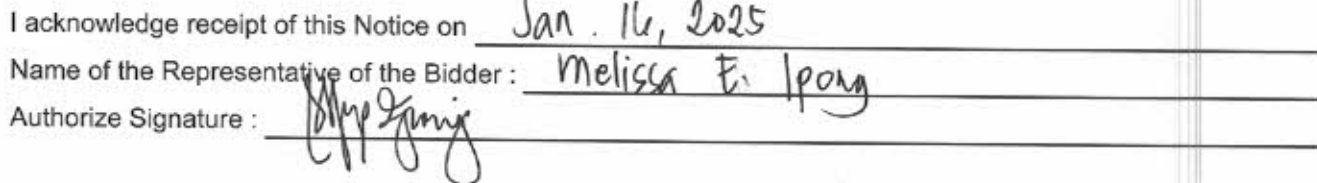 I acknowledge receipt of this Notice on Jan. 16, 2025
Name of the Representative of the Bidder : Melissa E. Ipong
Authorize Signature :